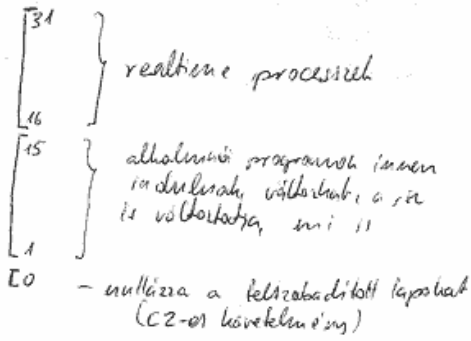 31
realtime processzek
16
15
alkalmazói programok innen
indulnak, változhat, a
is változtatja, mi is
1
0 - nullázza a felszabadított lapokat
(C2-es követelmény)